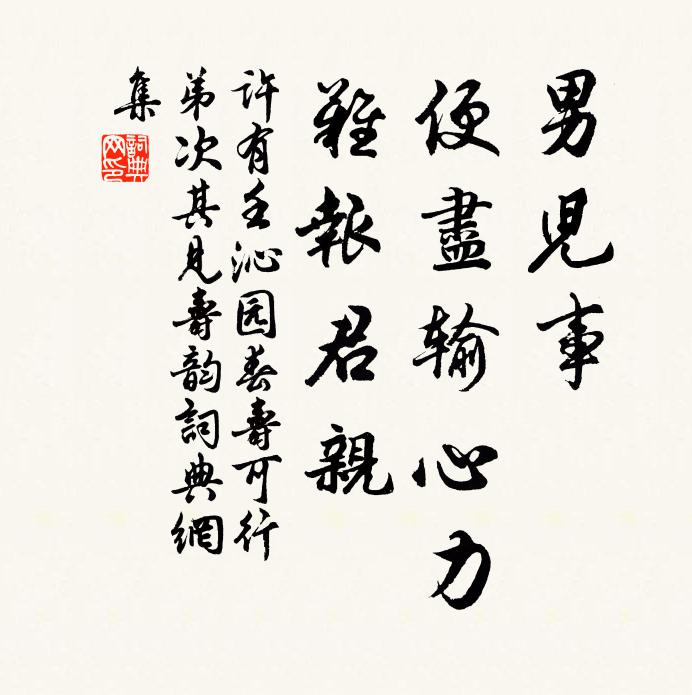 男児事
便盡输心力
難報君親
许有壬沁园春壽可行
弟次其見壽韵詞典網
集
詞典
网印